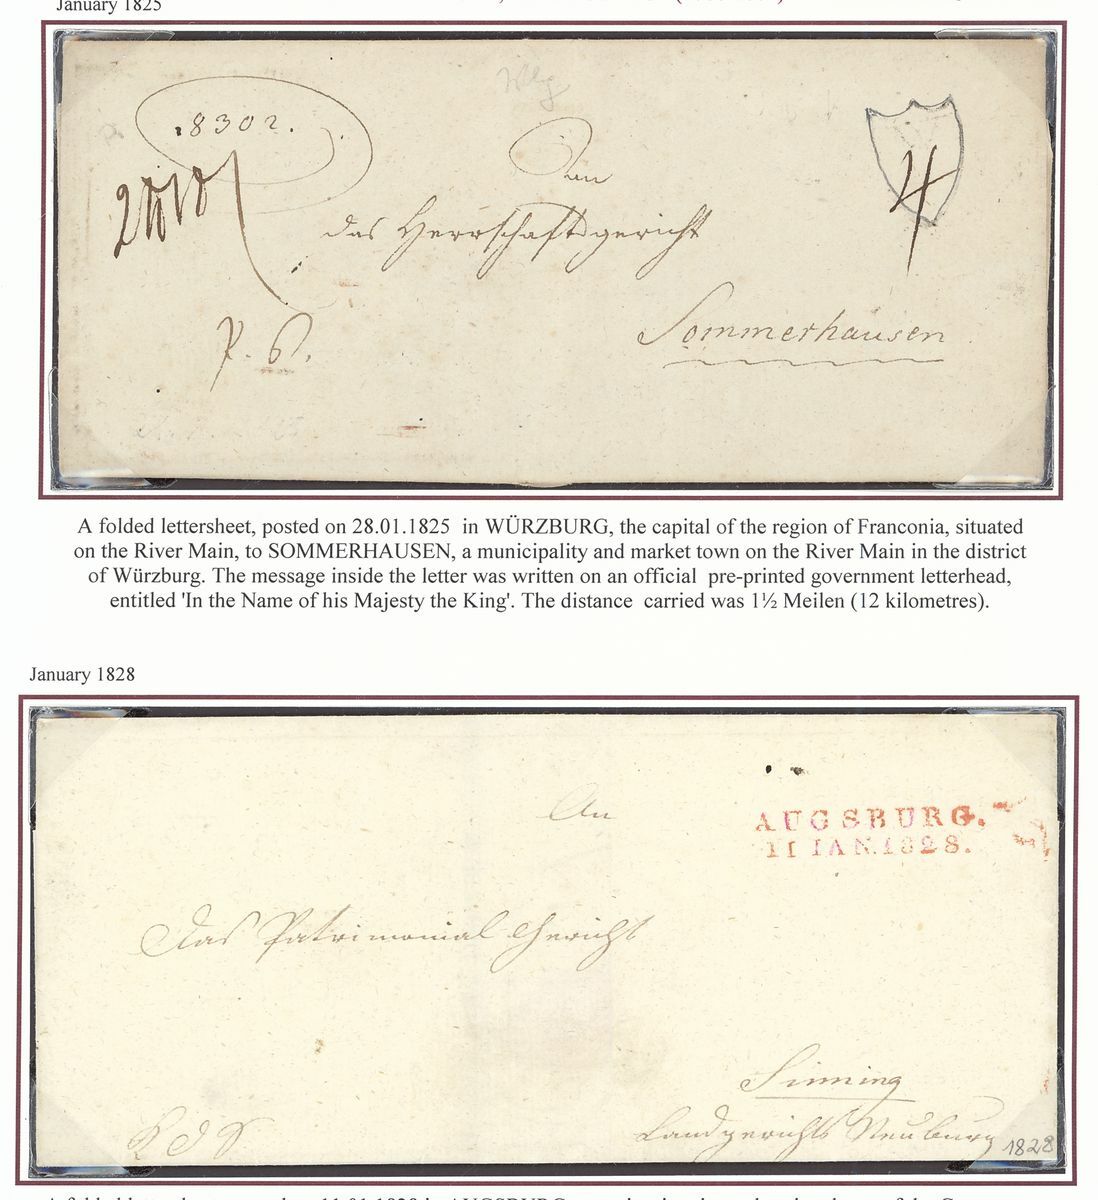 January 1825
Wbg
.8302.
An
das Herrschaftsgericht
4
Sommerhausen
A folded lettersheet, posted on 28.01.1825 in WÜRZBURG, the capital of the region of Franconia, situated
on the River Main, to SOMMERHAUSEN, a municipality and market town on the River Main in the district
of Würzburg. The message inside the letter was written on an official pre-printed government letterhead,
entitled 'In the Name of his Majesty the King'. The distance carried was 1½ Meilen (12 kilometres).
January 1828
An
AUGSBURG.
11 IAN.1828.
Das Patrimonial Gericht
Sinning
Landgerichts Neuburg
1828